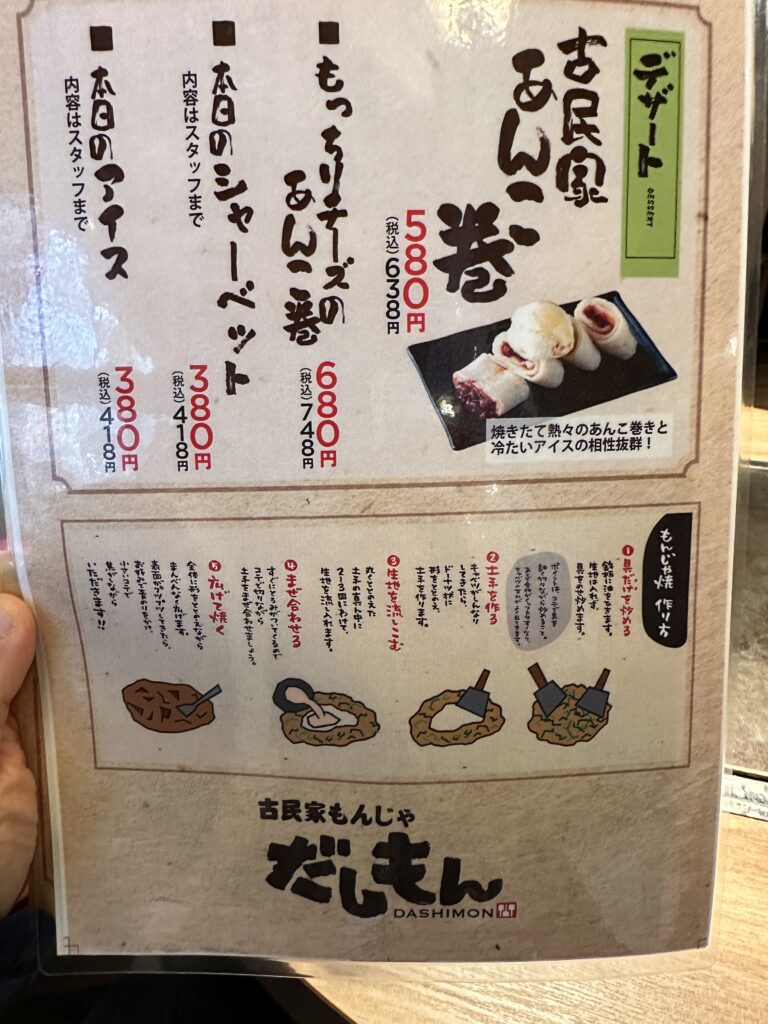 デザート
DESSERT
古民家
あんこ巻
580円
(税込)638円
焼きたて熱々のあんこ巻きと
冷たいアイスの相性抜群！
■もっちりチーズの
あんこ巻
680円
(税込)748円
■本日のシャーベット
内容はスタッフまで
380円
(税込)418円
■本日のアイス
内容はスタッフまで
380円
(税込)418円
もんじゃ焼 作り方
1 具だけを炒める
鉄板に油をひきます。
生地は入れず、
具をのせ炒めます。
2 土手を作る
キャベツがしんなり
してきたら、
ドーナツ状に
形をととのえ、
土手を作ります。
3 生地を流しこむ
丸くととのえた
土手の真ん中に
2〜3回にわけて、
生地を流し入れます。
4 まぜ合わせる
すぐにとろみがついてくるので
コテで切りながら
土手とまぜ合わせましょう。
5 広げて焼く
全体に形をととのえながら
まんべんなく広げます。
表面がフツフツしてきたら、
お好みで青のりをかけ、
小さいコテで
焦がしながら
いただきます!!
古民家もんじゃ
だしもん
DASHIMON